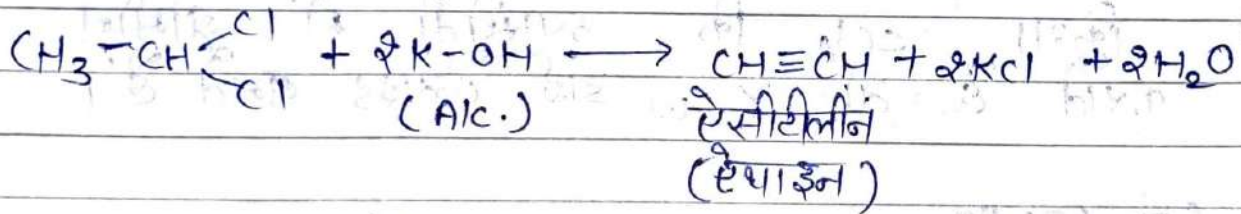 CH₃-CH<Cl Cl + 2K-OH ⟶ CH≡CH + 2KCl + 2H₂O
(Alc.) ऐसीटीलीन
(ऐथाइन)